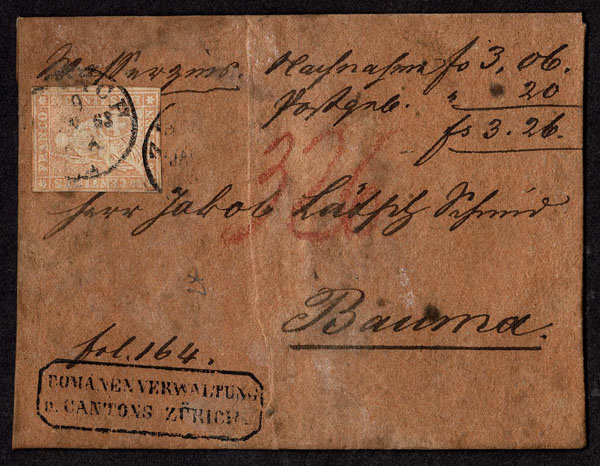 Wasserzins. Nachnahme fs 3, 06.
Postgeb. " 20
fs 3. 26.
326
Herr Jakob Lätsch Schmid
Bauma.
fol. 164.
DOMÄNENVERWALTUNG
D. CANTONS ZÜRICH.